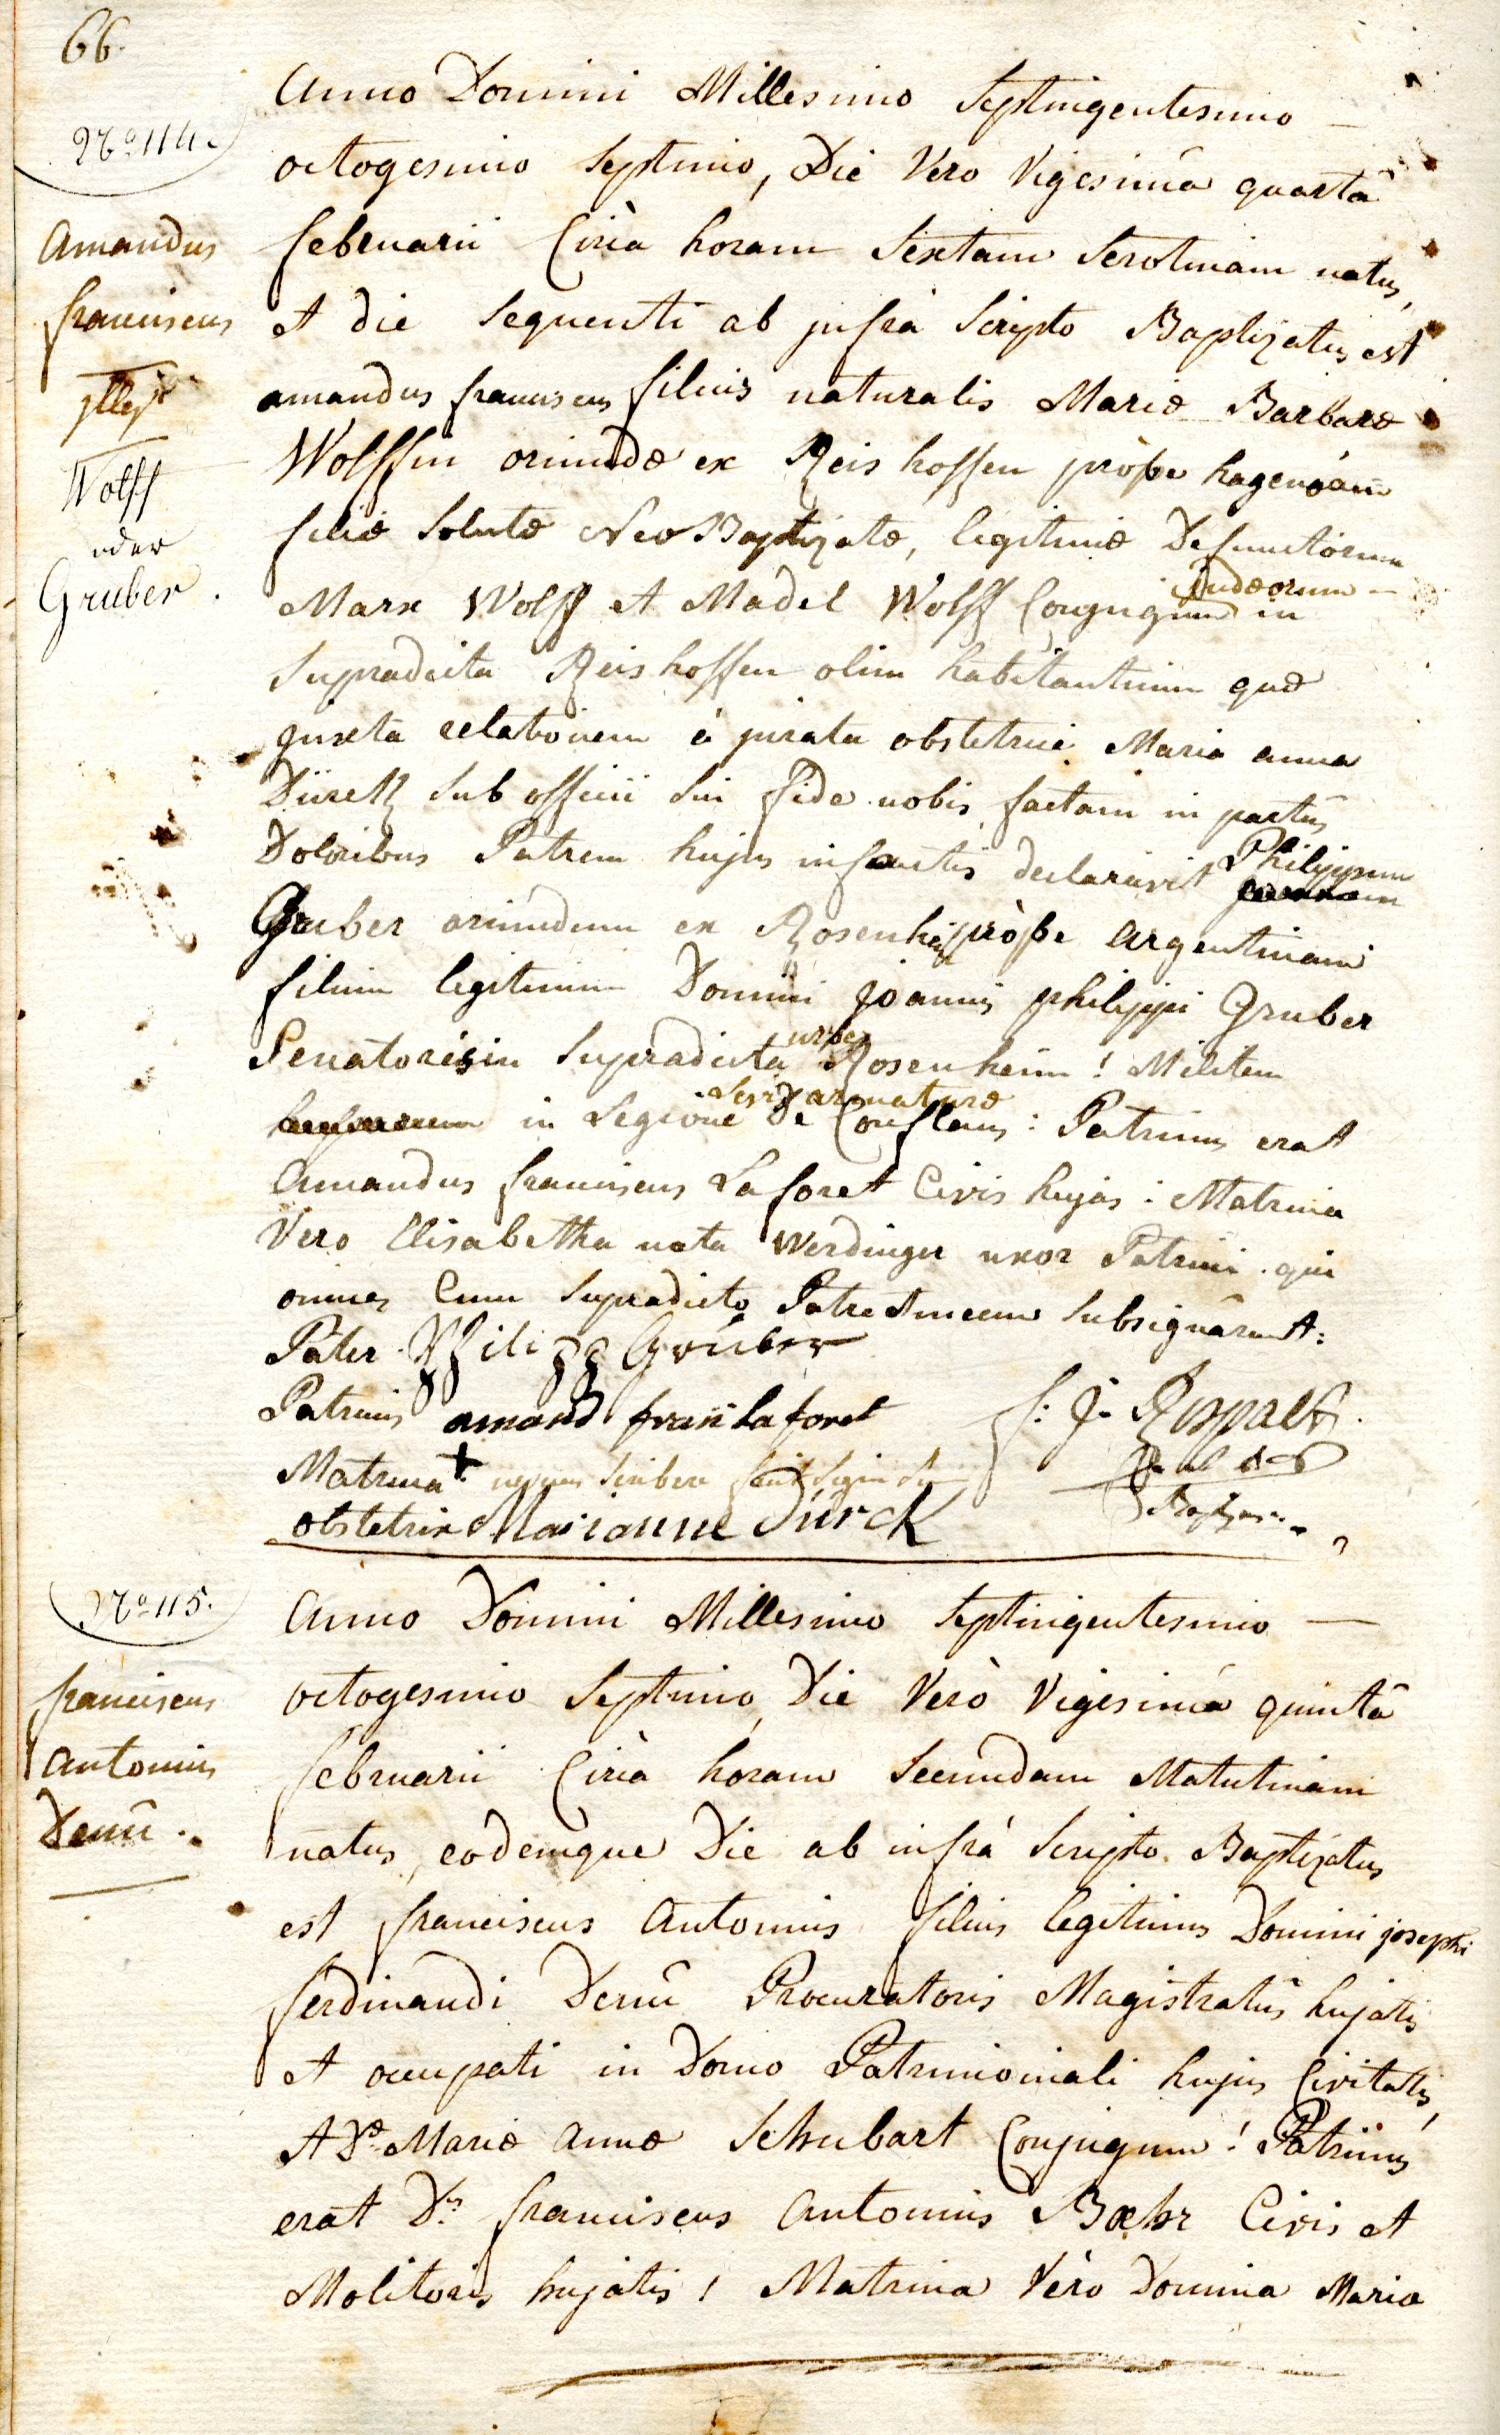 66.
No 114.
Amandus
franciscus
illeg.
Wolff
oder
Gruber.
Anno Domini Millesimo Septingentesimo —
octogesimo Septimo, Die Vero Vigesimâ quartâ
februarii Circà horam Sextam Serotinam natus,
et die Sequenti ab infra Scripto Baptizatus est
amandus franciscus filius naturalis Mariæ Barbaræ
Wolffin oriundæ ex Reishoffen pròpe hagenoam
filiæ Solutæ NeoBaptizatæ, legitimæ Defunctorum
Judæorum —
Marx Wolff et Madel Wolff Conjugum in
Supradicta Reishoffen olim habitantium quæ
juxta relationem à jurata obstetrice Maria anna
Dürck Sub officii Sui fide nobis factam in partûs
Doloribus Patrem hujus infantis declaravit Philippum
Gruber oriundum ex Rosenheim pròpe Argentinam
filium legitimum Domini joannis philippi Gruber
Senatoris in Supradicta urbe Rosenheim! Militem
levis armaturæ
in Legione De Conflans: Patrinus erat
Amandus franciscus Laforet Civis hujas: Matrina
Vero Elisabetha nata Werdinger uxor Patrini qui
omnes Cum Supradicto Patre et mecum Subsignârunt:
Pater Philipp Gruber
Patrinus amand fran laforet
Matrina +
obstetrix Marianne Dürck
No 115.
franciscus
Antonius
Demû.
Anno Domini Millesimo Septingentesimo —
octogesimo Septimo, Die Verò Vigesimâ quintâ
februarii Circà horam Secundam Matutinam
natus, eodemque Die ab infrà Scripto Baptizatus
est franciscus Antonius filius legitimus Domini josephi
ferdinandi Demû Procuratoris Magistratûs hujatis
et occupati in Domo Patrimoniali hujus Civitatis,
et Dæ Mariæ Annæ Schubart Conjugum! Patrinus
erat Ds franciscus Antonius Bæhr Civis et
Molitoris hujatis! Matrina Vèro Domina Maria